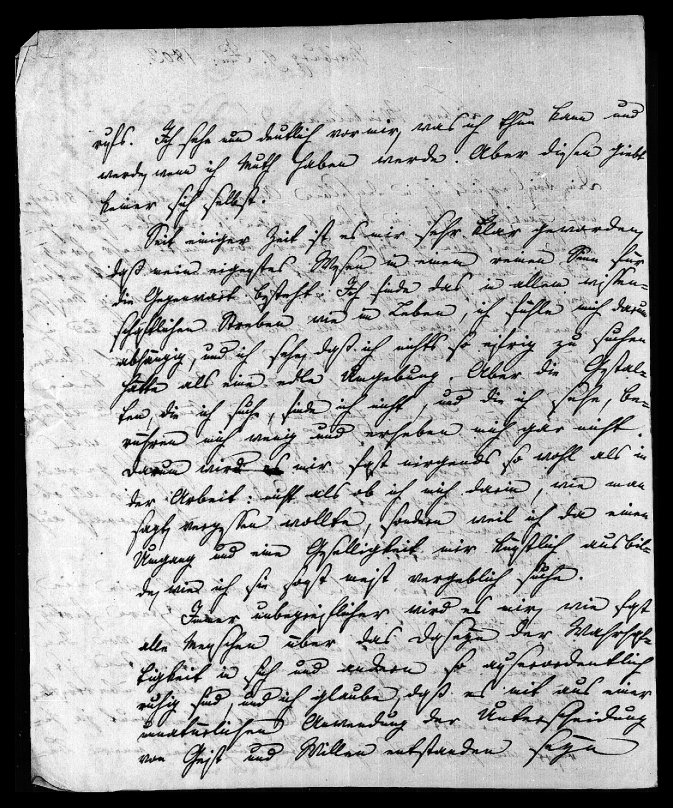 rufs. Ich sehe nun deutlich vor mir, was ich thun kann und
werde, wenn ich Muth haben werde. Aber diesen giebt
keiner sich selbst.
Seit einiger Zeit ist es mir sehr klar geworden,
daß mein eigenstes Wesen in einem reinen Sinn für
die Gegenwart besteht. Ich finde das in allen wissen-
schaftlichen Streben wie im Leben, ich fühle mich davon
abhängig, und ich sehe, daß ich nichts so eifrig zu suchen
hätte als eine edle Umgebung. Aber die Gestal-
ten, die ich suche, finde ich nicht, und die ich sehe, be-
rühren mich wenig und erheben mich gar nicht.
Darum wird es mir fast nirgends so wohl als in
der Arbeit: nicht als ob ich mich darin, wie man
sagt, vergessen wollte, sondern weil ich da einen
Umgang und eine Geselligkeit mir künstlich ausbil-
de, wie ich sie sonst meist vergeblich suche.
Immer unbegreiflicher wird es mir, wie fast
alle Menschen über das Daseyn der Wahrhaf-
tigkeit in sich und andern so ausserordentlich
ruhig sind, und ich glaube, daß es mit aus einer
unnatürlichen Anwendung der Unterscheidung
von Geist und Willen entstanden seyn